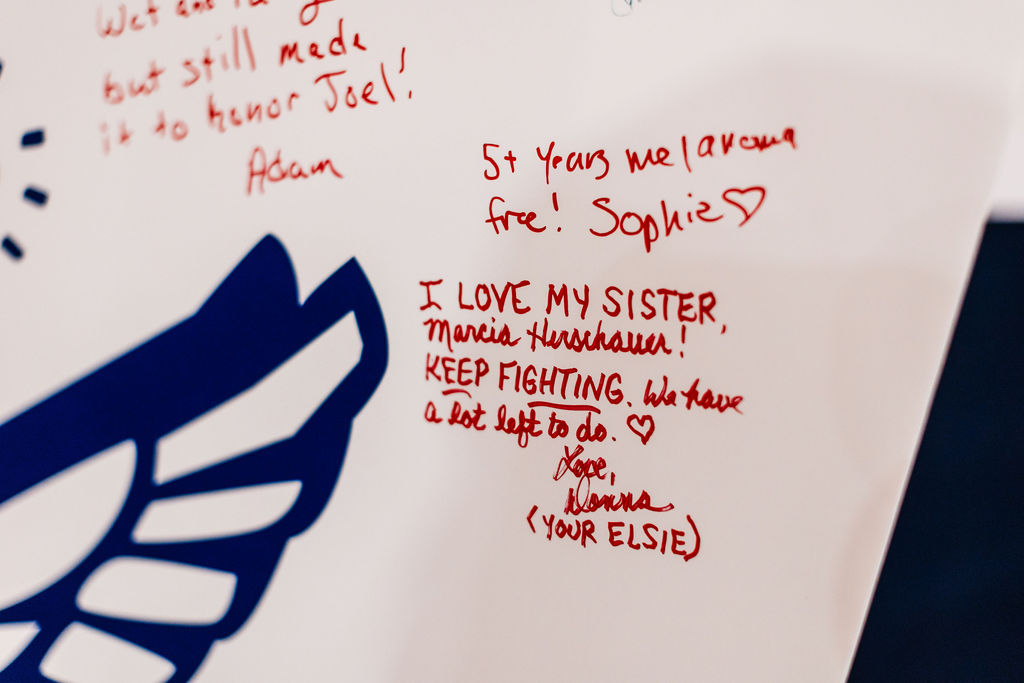 Wet and
but still made
it to honor Joel!
Adam
5+ Years melanoma
free! Sophie♡
I LOVE MY SISTER,
Marcia Herschauer!
KEEP FIGHTING. We have
a lot left to do. ♡
Love,
Donna
(YOUR ELSIE)